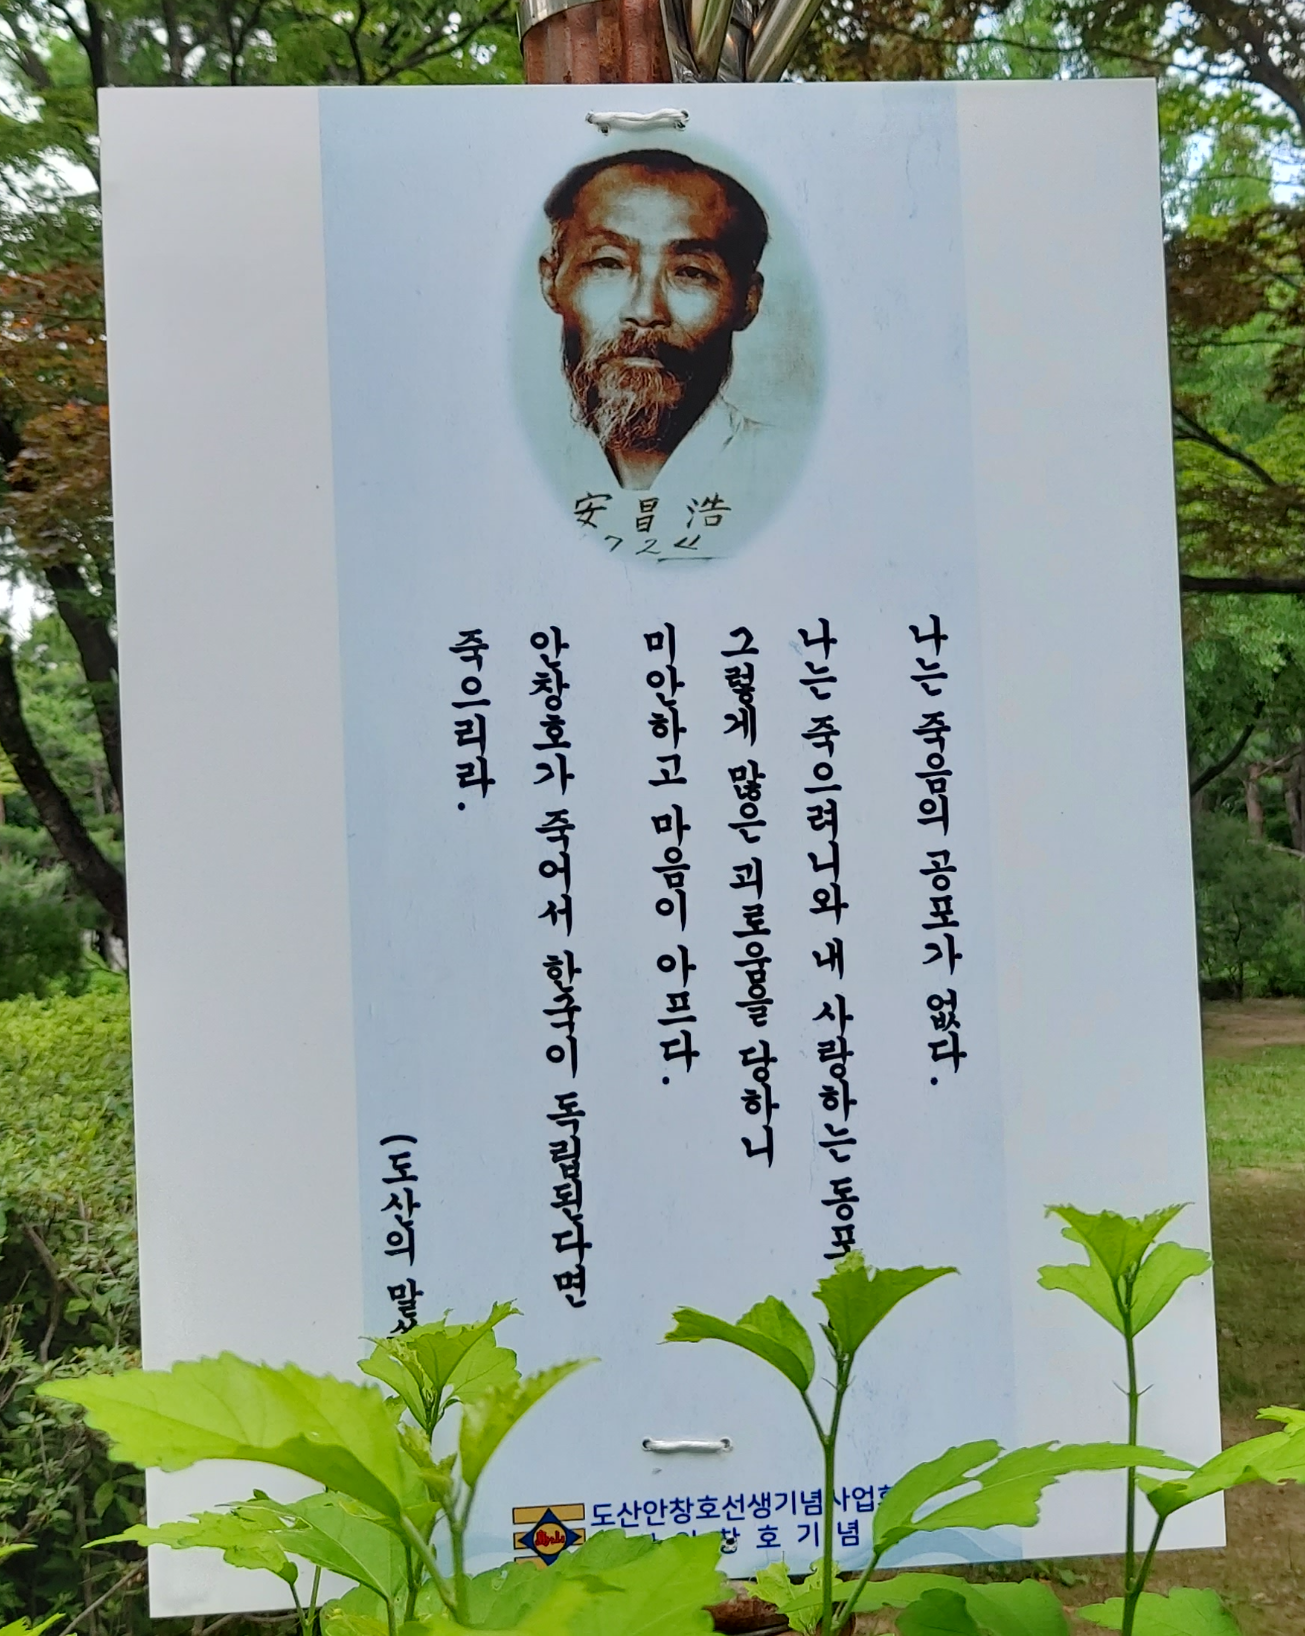 安昌浩
724
나는 죽음의 공포가 없다.
나는 죽으려니와 내 사랑하는 동포
그렇게 많은 괴로움을 당하니
미안하고 마음이 아프다.
안창호가 죽어서 한국이 독립된다면
죽으리라.
(도산의 말
도산안창호선생기념사업회
창호기념